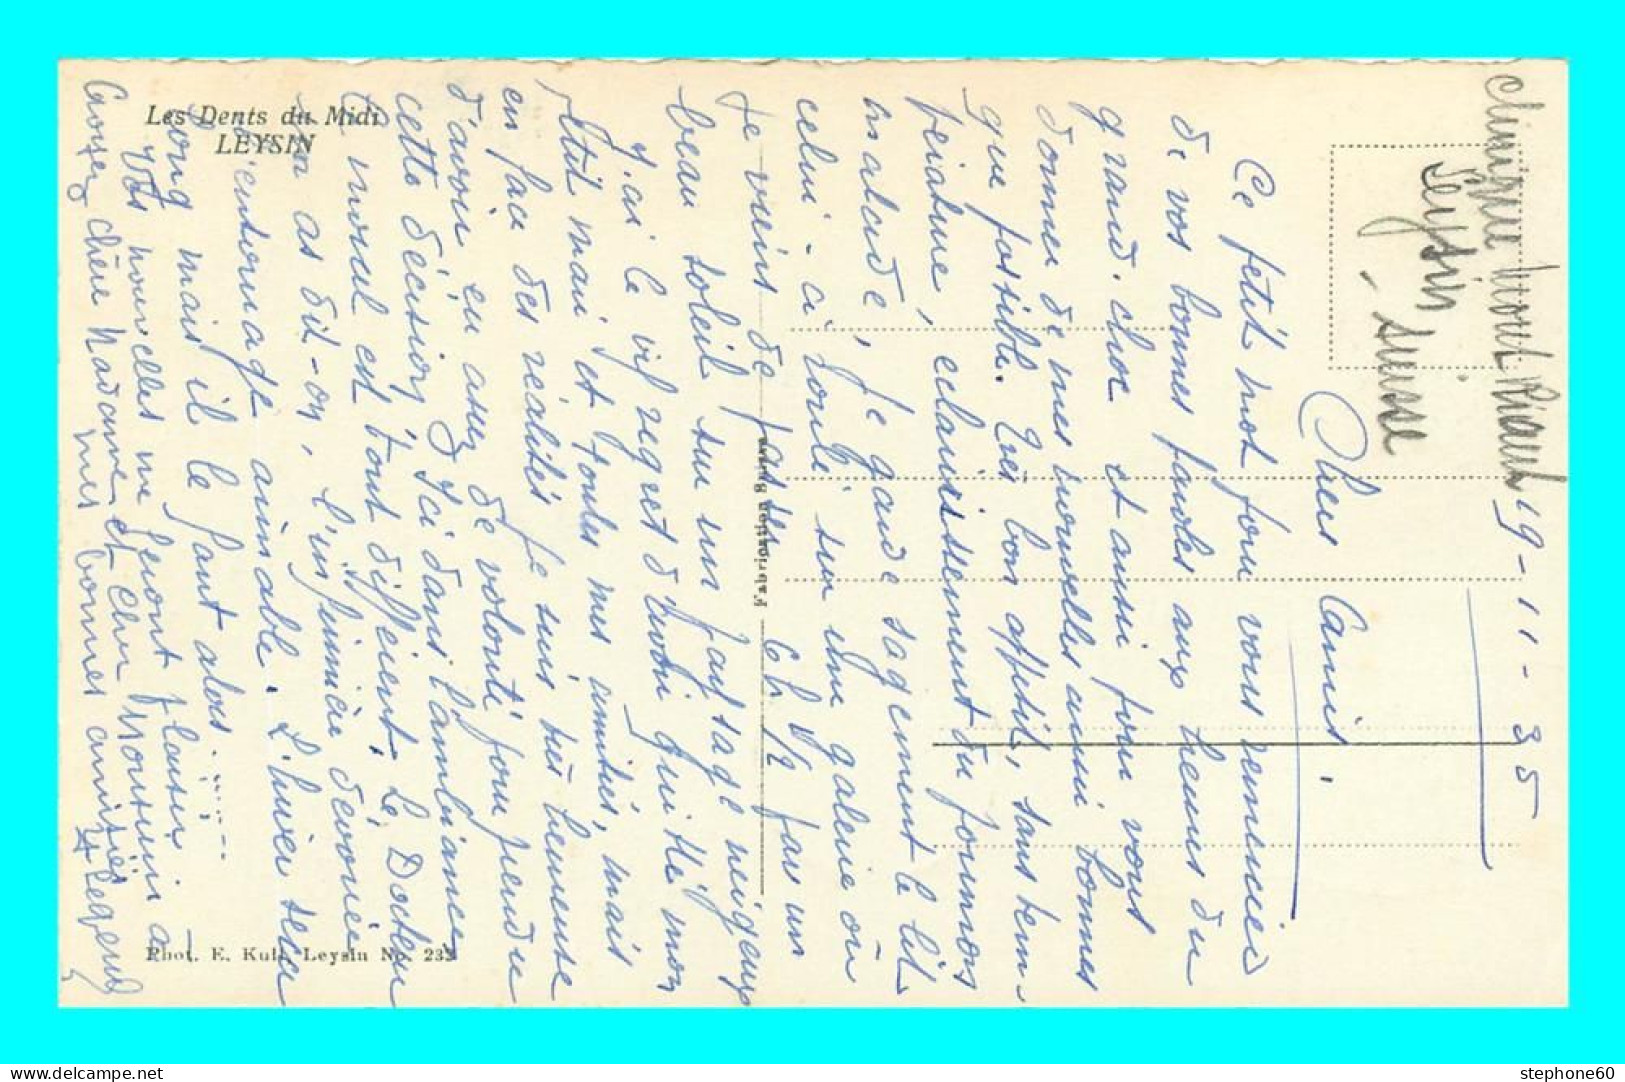 Clinique Mont Riant 19-11-35
Leysin
Suisse
Chers Amis,
Ce petit mot pour vous remercier
de vos bonnes paroles aux heures du
grand choc et aussi pour vous
donner de mes nouvelles aussi bonnes
que possible. Très bon appétit, sans tem-
pérature, éclaircissement du poumon
malade, je garde sagement le lit
celui-ci roulé sur une galerie où
je viens de passer 6h 1/2 par un
beau soleil sur un paysage neigeux
J'ai le vif regret d'avoir quitté mon
petit mari et toutes mes amitiés, mais
en face des réalités je suis très heureuse
d'avoir eu assez de volonté pour prendre
cette décision. Ici dans l'ambiance
le moral est tout différent. Le Docteur
as dit-on, l'infirmière dévouée
l'entourage aimable. L'hiver sera
long mais il le faut alors......
Vos nouvelles me feront plaisir
Croyez chère Madame et cher Monsieur à
mes bonnes amitiés
Les Dents du Midi
LEYSIN
Phot. E. Kull, Leysin No. 232
Fabrication Suisse
stephone60